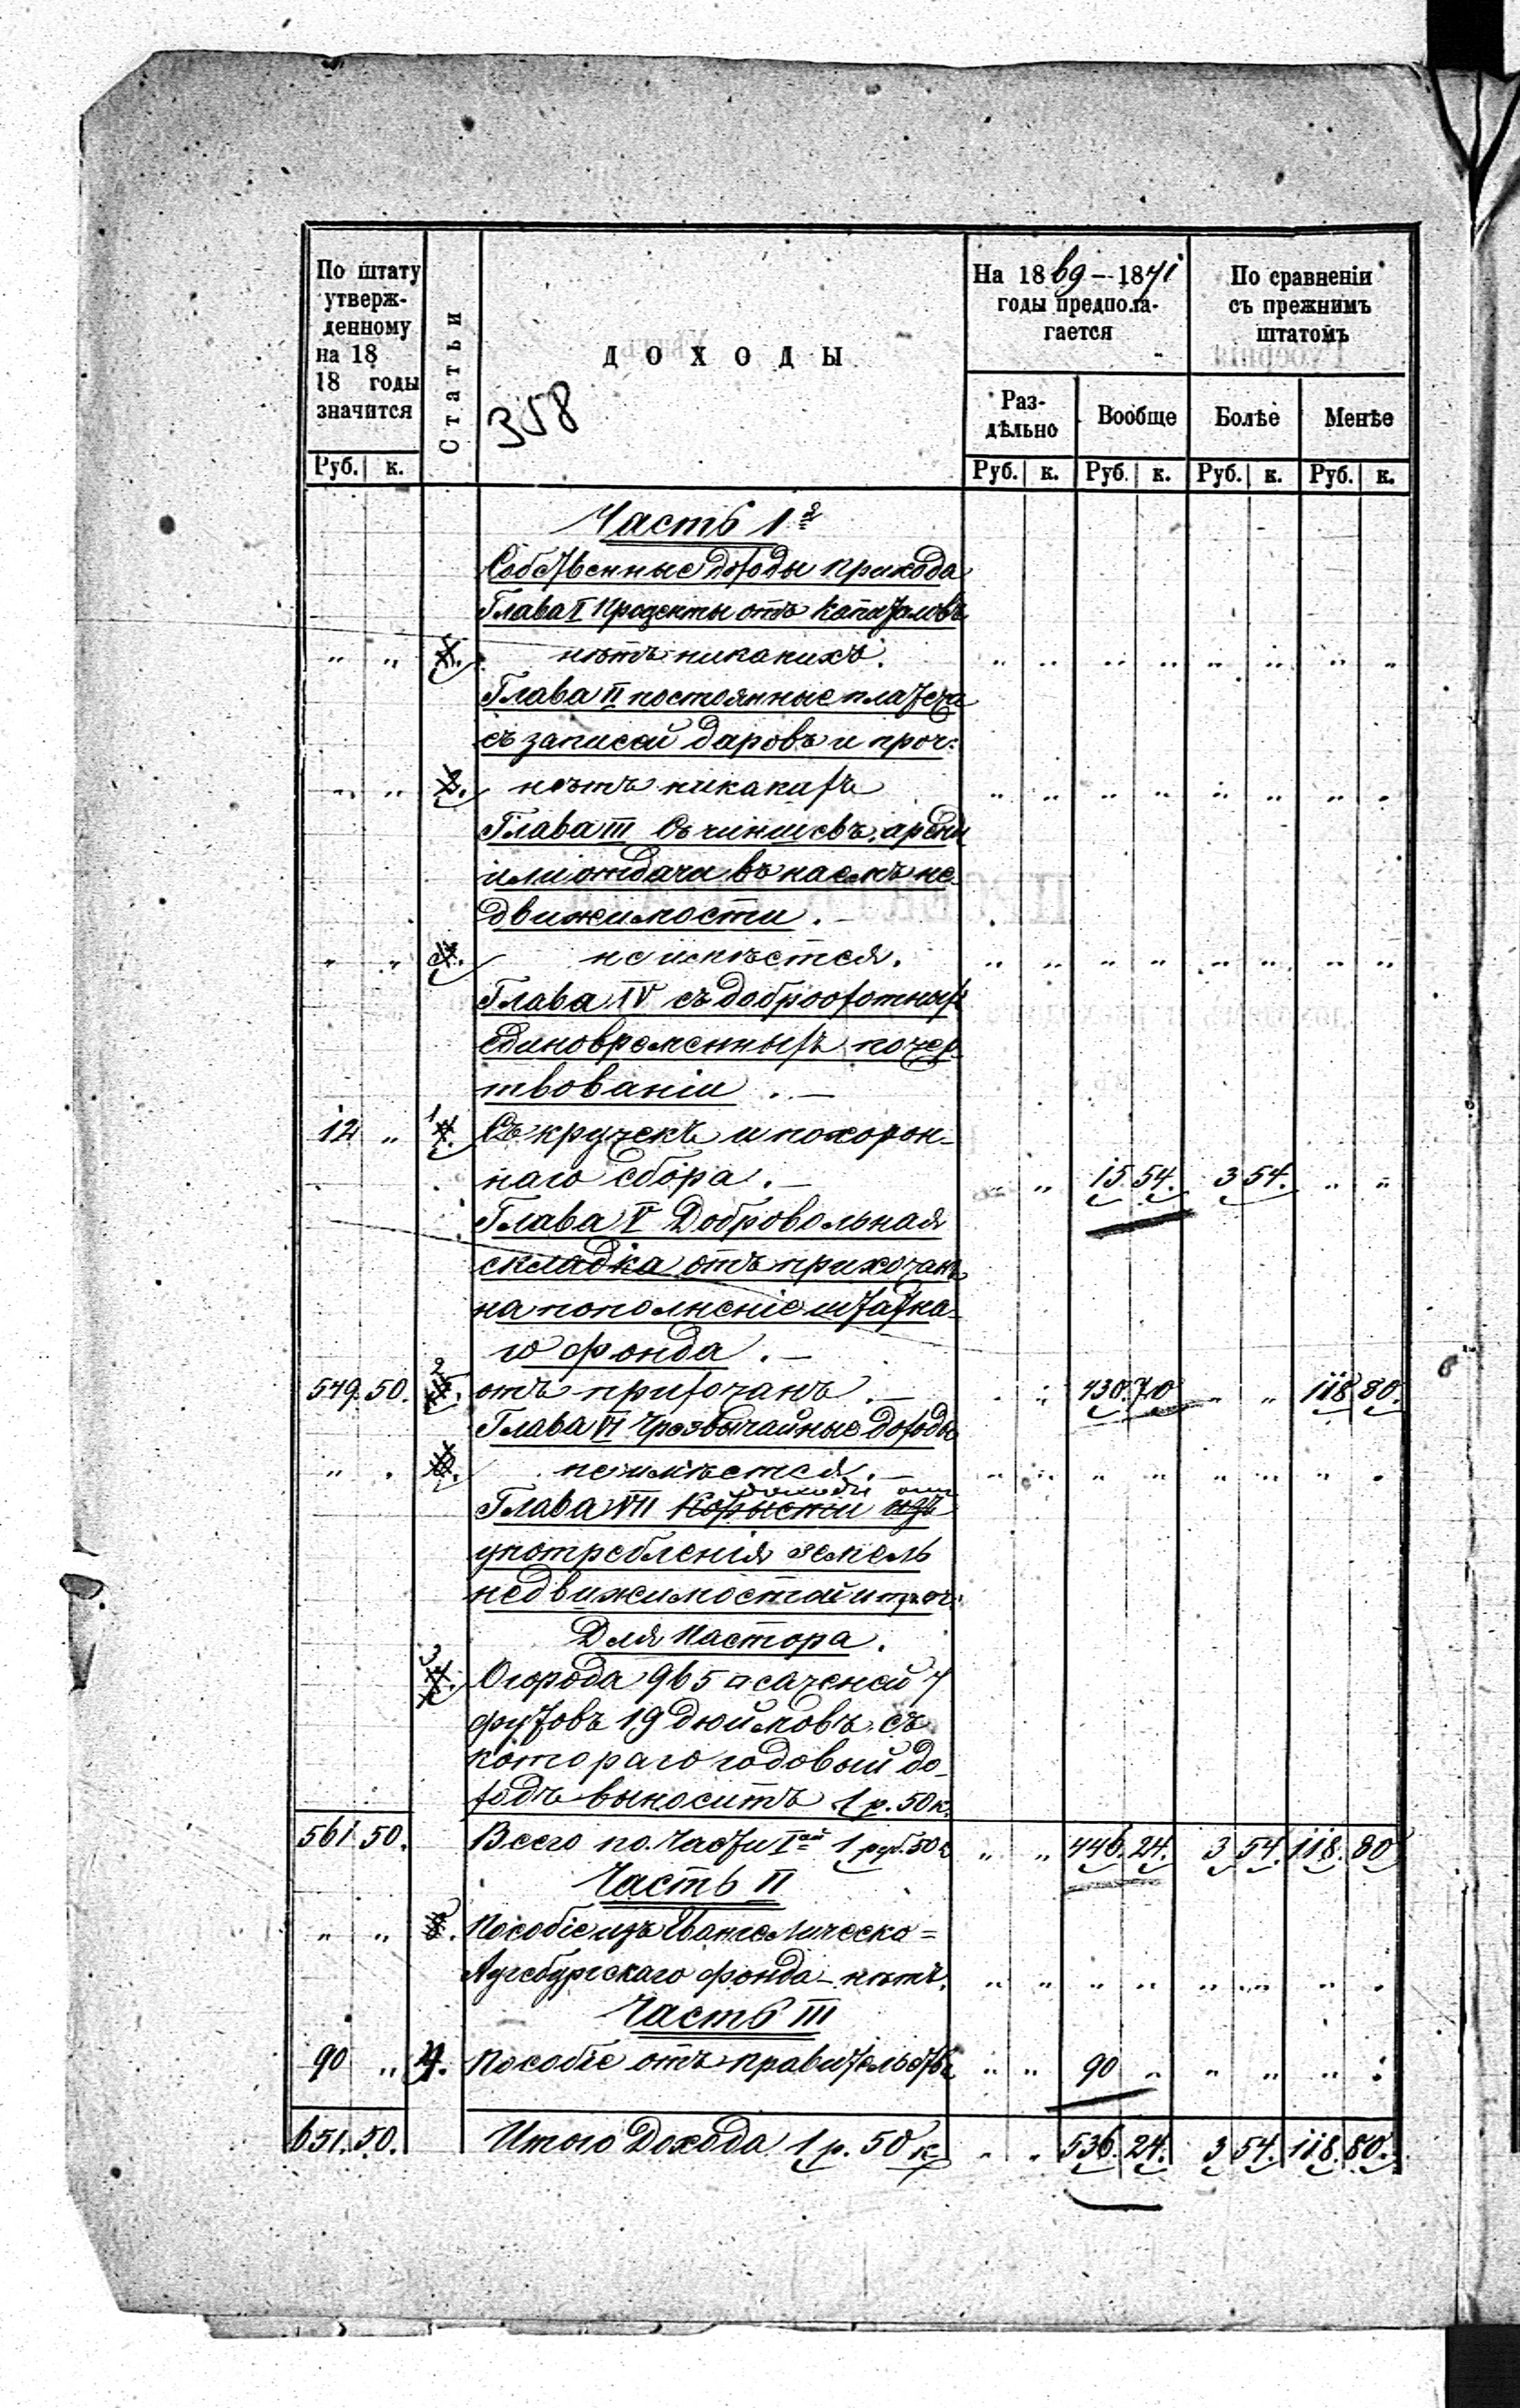 По штату утверж-денному на 18 18 годы значится
Статьи
ДОХОДЫ
358
На 1869 — 1871 годы предпола-гается
По сравненіи съ прежнимъ штатомъ
Раз-дѣльно
Вообще
Болѣе
Менѣе
Руб. к.
Руб. к. Руб. к. Руб. к. Руб. к.
Часть 1я
Собственные доходы прихода
Глава I Проценты отъ капиталовъ
" " 1. нѣтъ никакихъ. " " " " " " " "
Глава II постоянные платежи
съ записей даровъ и проч:
" " 2. нѣтъ никакихъ " " " " " " " "
Глава III Съ чиншевъ, аренды
или отдачи въ наемъ не-
движимости. —
" " 3. не имѣется. " " " " " " " "
Глава IV съ доброохотныхъ
единовременныхъ пожер-
твованіи. —
12 " 1 4. Съ кружекъ и похорон-
наго сбора. — " " 15 54. 3 54. " "
Глава V Добровольная
складка отъ прихожанъ
на пополненіе штатна-
го фонда. —
549. 50. 2 отъ прихожанъ. — " " 430. 70 " " 118 80.
Глава VI Чрезвычайные доходы
" " не имѣется. — " " " " " " " "
доходы отъ
Глава VII Корысти изъ
употребленія земель
недвижимостей и проч:
Для Пастора.
3 Огорода 965 □ саженей 7
футовъ 19 дюймовъ съ
котораго годовый до-
ходъ выноситъ 1 р. 50 к.
561 50. Всего по Части Iой 1 руб. 50 к " " 446. 24. 3 54. 118. 80
Часть II
" " 8. Пособіе изъ Евангелическо=
Аугсбургскаго фонда — нѣтъ. " " " " " " " "
Часть III
90 " 4. Пособіе отъ правительства " " 90 " " " " "
651. 50. Итого Дохода 1 р. 50 к " " 536. 24. 3 54. 118. 80.